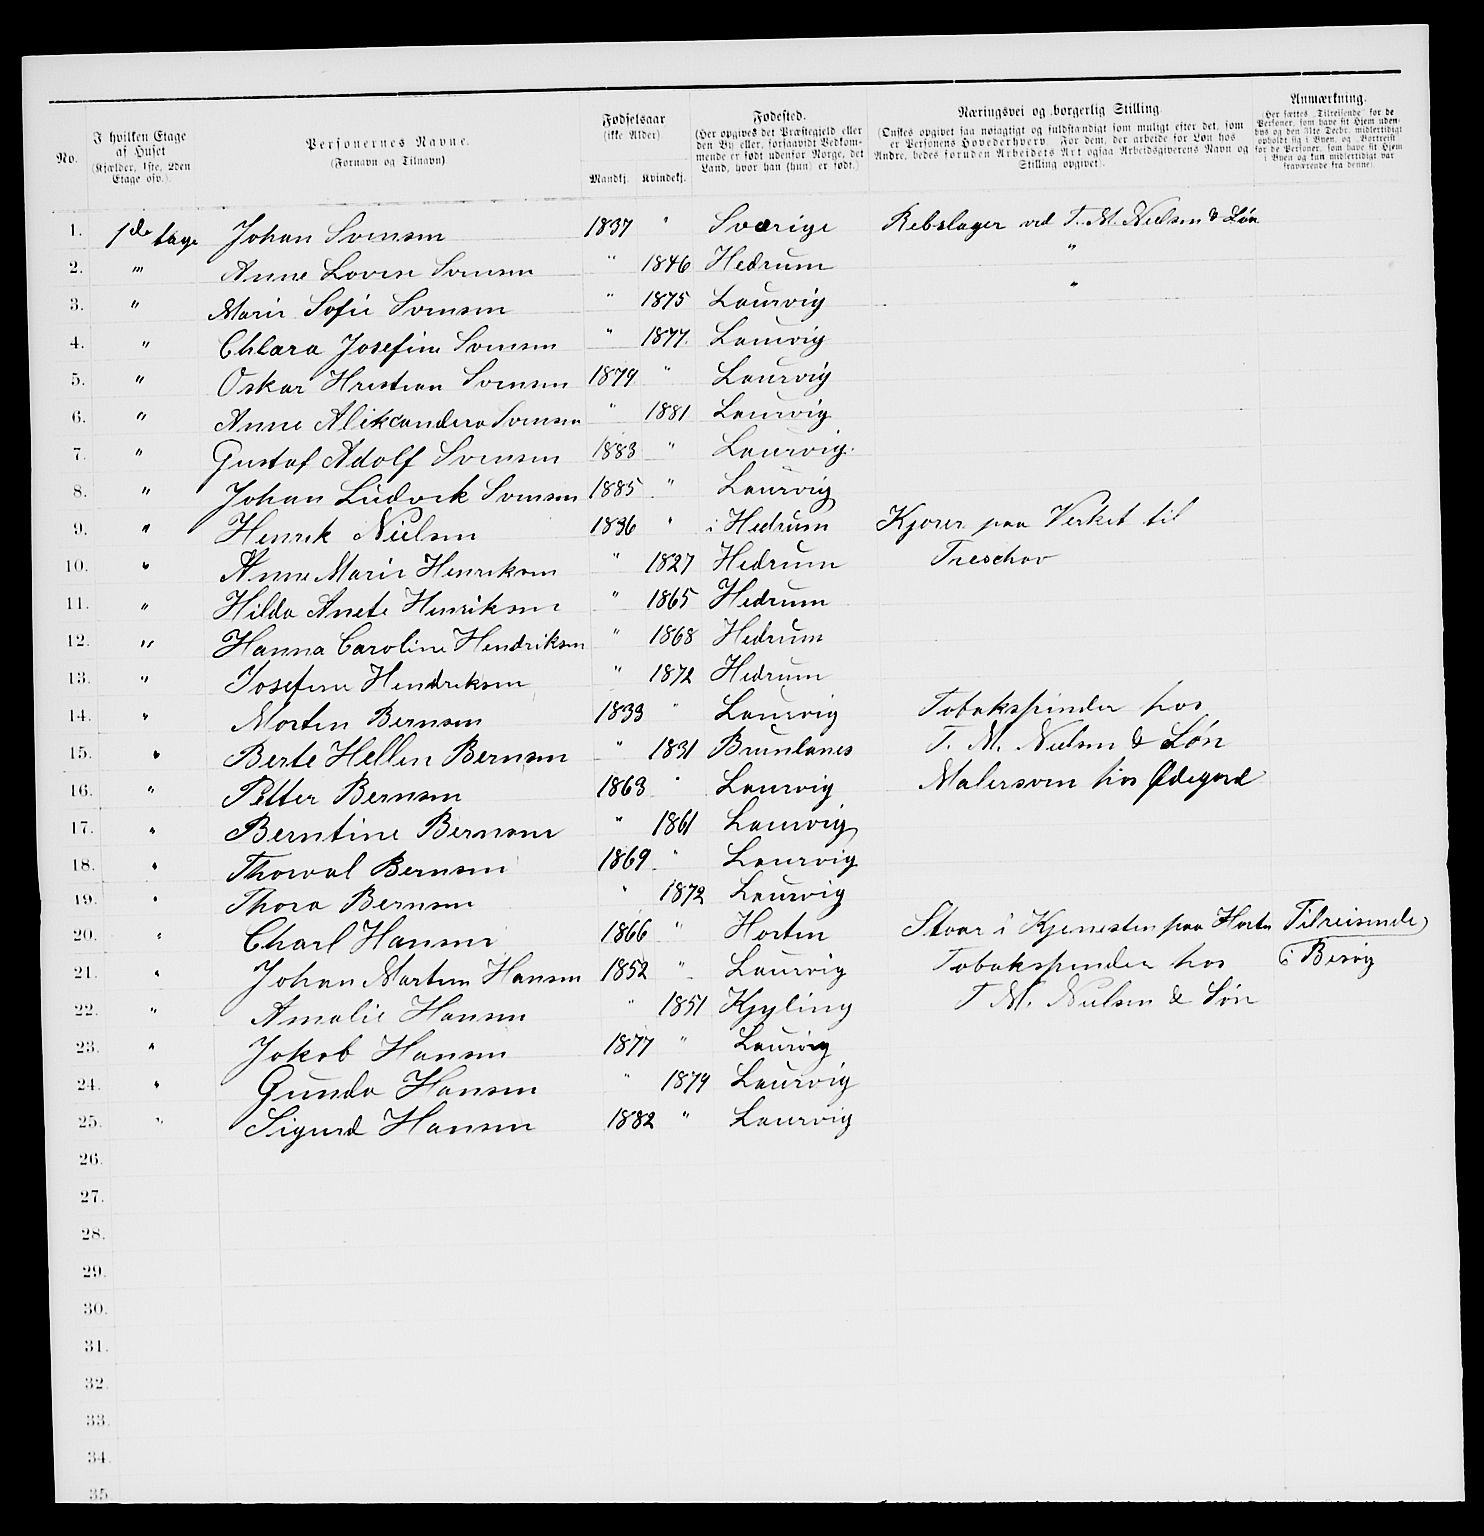 No. | I hvilken Etage af Huset (Kjælder, 1ste, 2den Etage osv.) | Personernes Navne. (Fornavn og Tilnavn) | Fødselsaar (ikke Alder) Mandkj. Kvindekj. | Fødested. (Her opgives det Præstegjeld eller den By eller, forsaavidt Vedkommende er født udenfor Norge, det Land, hvor han (hun) er født.) | Næringsvei og borgerlig Stilling. (Ønskes opgivet saa nøiagtigt og fuldstændigt som muligt efter det, som er Personens Hovederhverv. For dem, der arbeide for Løn hos Andre, bedes foruden Arbeidets Art ogsaa Arbeidsgiverens Navn og Stilling opgivet). | Anmærkning. (Her sættes „Tilreisende“ for de Personer, som have sit Hjem udenbys og den 31te Decbr. midlertidigt opholdt sig i Byen, og „Bortreist“ for de Personer, som have sit Hjem i Byen og kun midlertidigt var fraværende fra denne).
1. 1de tage Johan Svensen 1837 " Sværige Rebslager ved T. M. Nielsen & Søn
2. " Anne Lovise Svensen " 1846 Hedrum "
3. " Marie Sofie Svensen " 1875 Laurvig "
4. " Chlara Josefine Svensen " 1877. Laurvig
5. " Oskar Hristian Svensen 1879 " Laurvig
6. " Anne Alikxandera Svensen " 1881 Laurvig
7. " Gustaf Adolf Svensen 1883 " Laurvig.
8. " Johan Ludvik Svensen 1885 " Laurvig
9. " Henrik Nielsen 1836 " i Hedrum Kjører paa Verket til
10. " Anne Marie Henriksen " 1827 Hedrum Treschov
11. " Hilda Anete Henriksen " 1865 Hedrum
12. " Hanna Caroline Hendriksen " 1868 Hedrum
13. " Josefine Hendreksen " 1872 Hedrum
14. " Morten Bernsen 1833 " Laurvig Tobakspinder hos
15. " Berte Hellen Bernsen " 1831 Brunlanes T. M. Nielsen & Søn
16. " Petter Bernsen 1863 " Laurvig Malersven hos Ødegard
17. " Berntine Bernsen " 1861 Laurvig
18. " Thorval Bernsen 1869 " Laurvig
19. " Thora Bernsen " 1872 Laurvig
20. " Charl Hansen 1866 " Horten Staar i Kjenesten paa Horten Tilreisende
21. " Johan Martin Hansen 1852 " Laurvig Tobakspinder hos i Besøg
22. " Amalie Hansen " 1851 Kjyling T M. Nielsen & Søn
23. " Jakob Hansen 1877 " Laurvig
24. " Gunda Hansen " 1879 Laurvig
25. " Sigurd Hansen 1882 " Laurvig
26.
27.
28.
29.
30.
31.
32.
33.
34.
35.